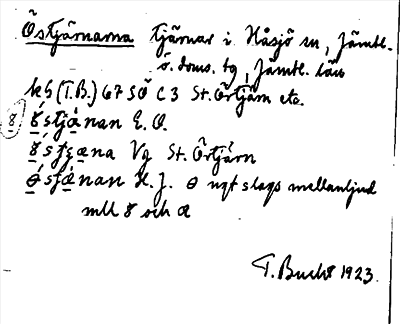 Östjärnarna tjärnar i Håsjö sn, Jämtl.
ö. doms. tg, Jämtl. län
ks (T.B.) 67 SÖ C 3 St. Örtjärn etc.
8 8́stjä̀nan E. O.
8́stjæna Vg St. Örtjärn
ɵ́stjæ̀nan H. J. ɵ ngt slags mellanljud
mll 8 och æ
T. Bucht 1923.